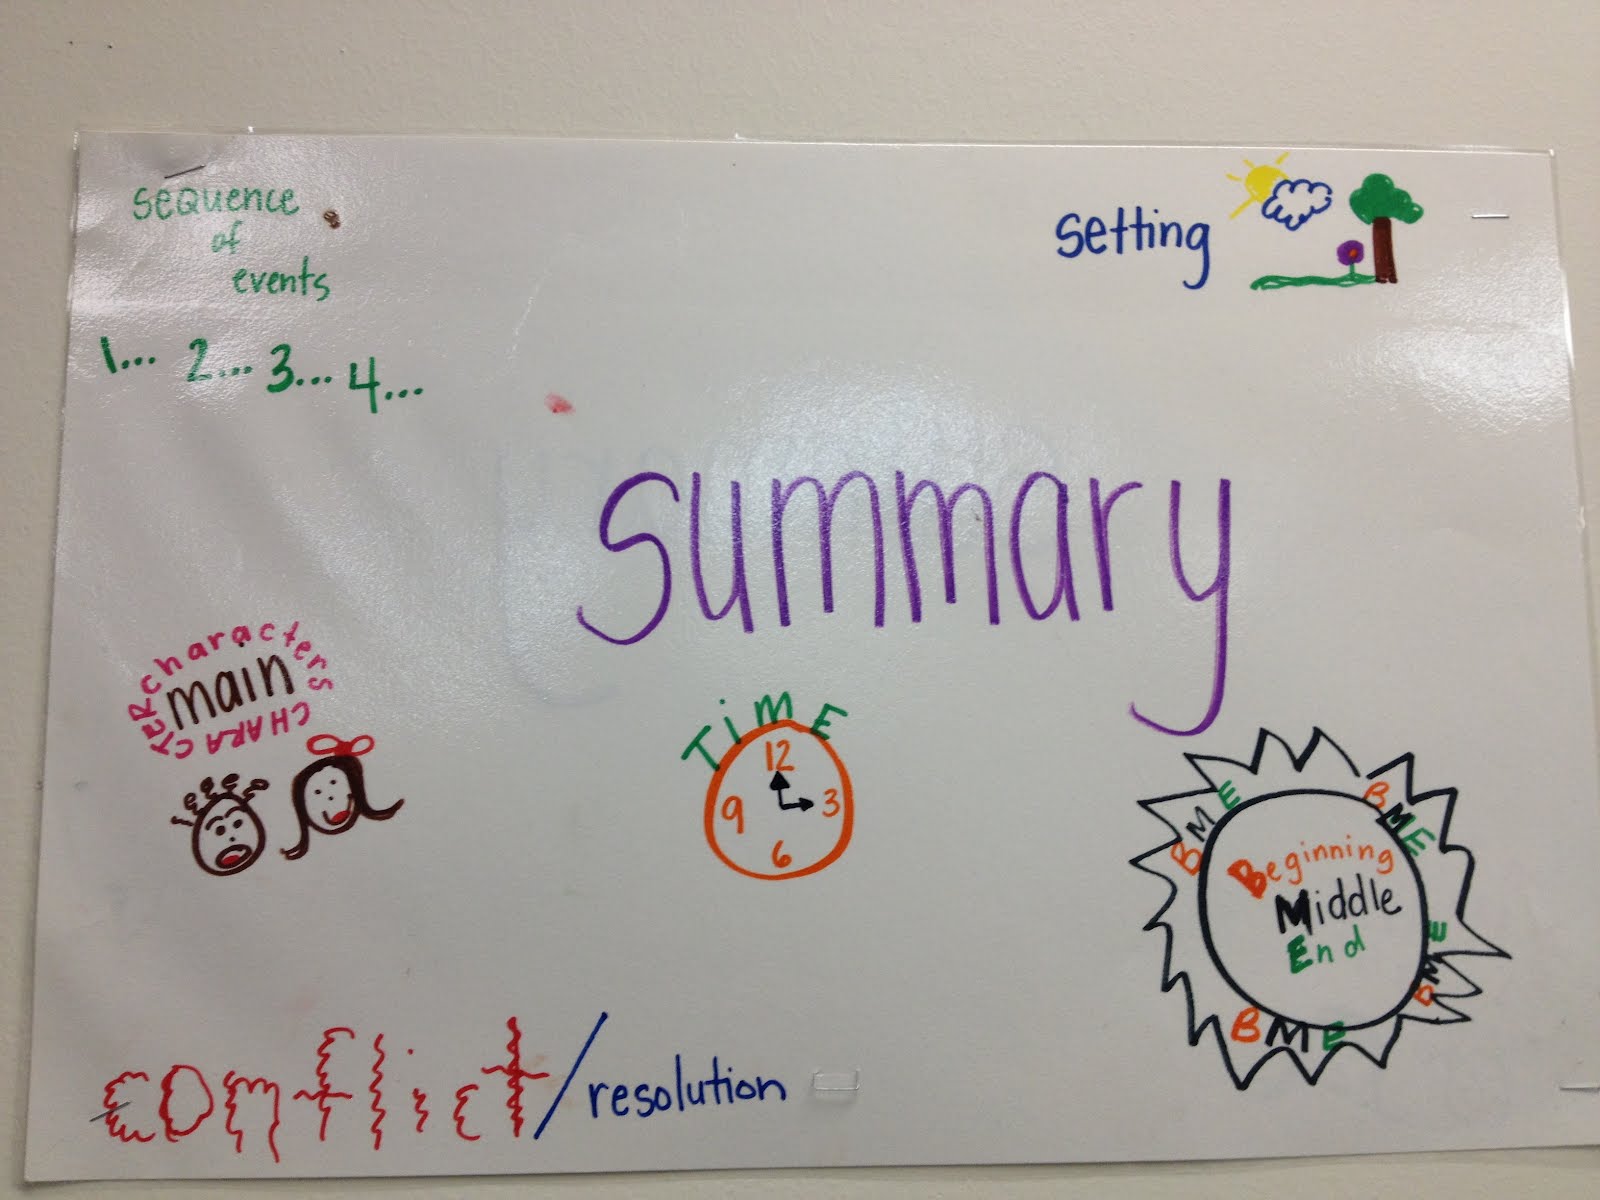 sequence
of
events
1... 2... 3... 4...
setting
summary
characters
main
CHARACTER
TiME
12
9 3
6
BME
BME
Beginning
Middle
End
BME
BME
conflict/resolution